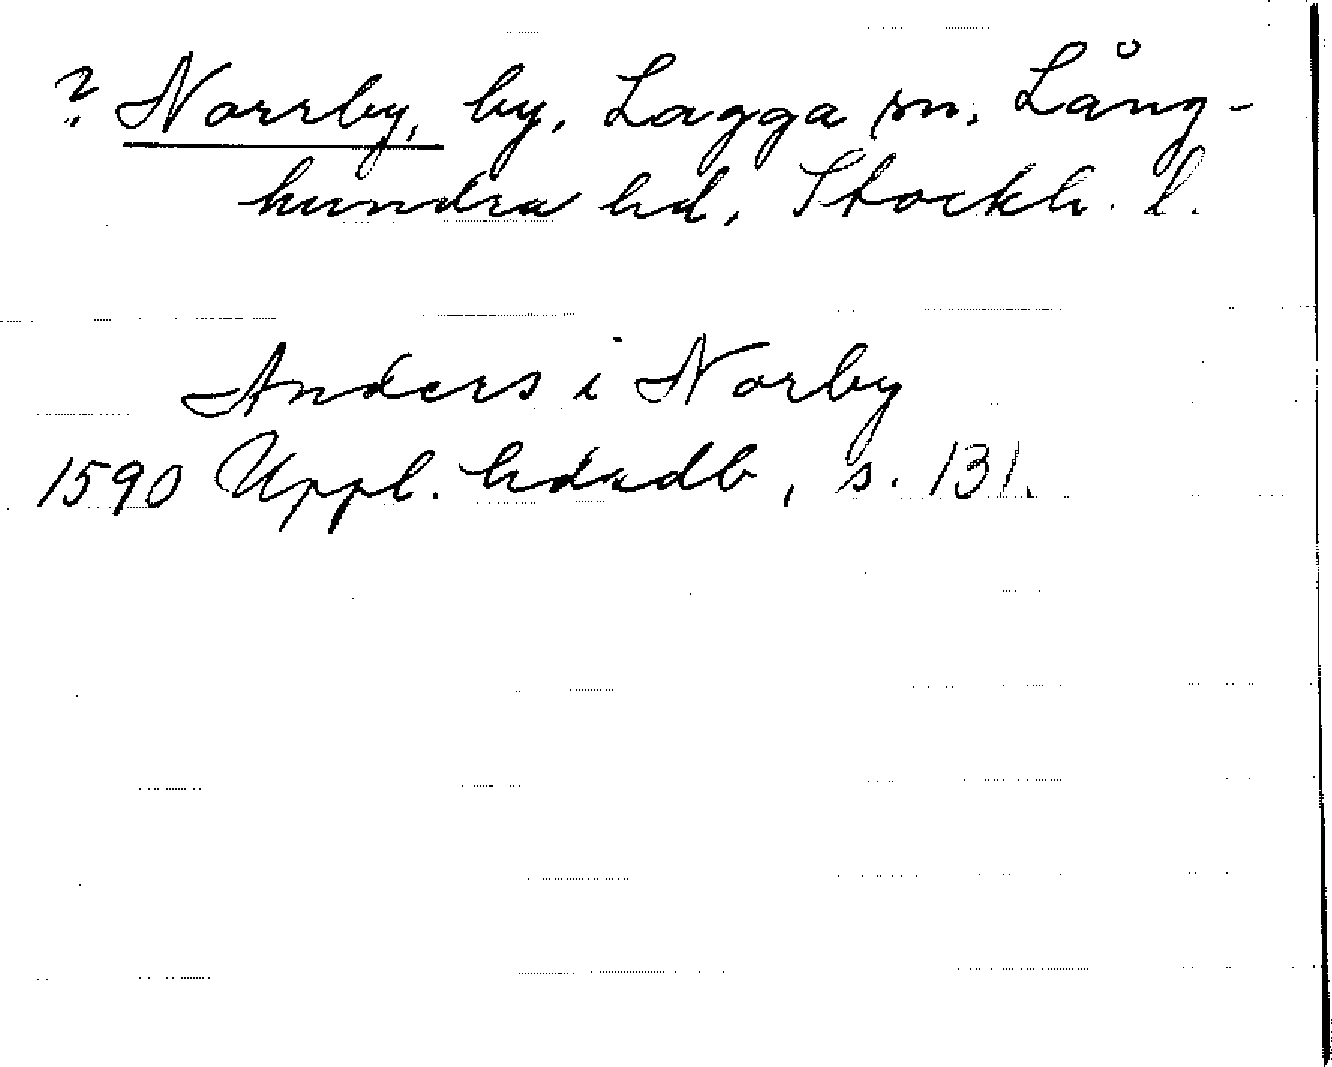 ? Norrby, by, Lagga sn, Lång-
hundra hd, Stockh. l.
Anders i Norby
1590 Uppl. hdadb, s. 131.